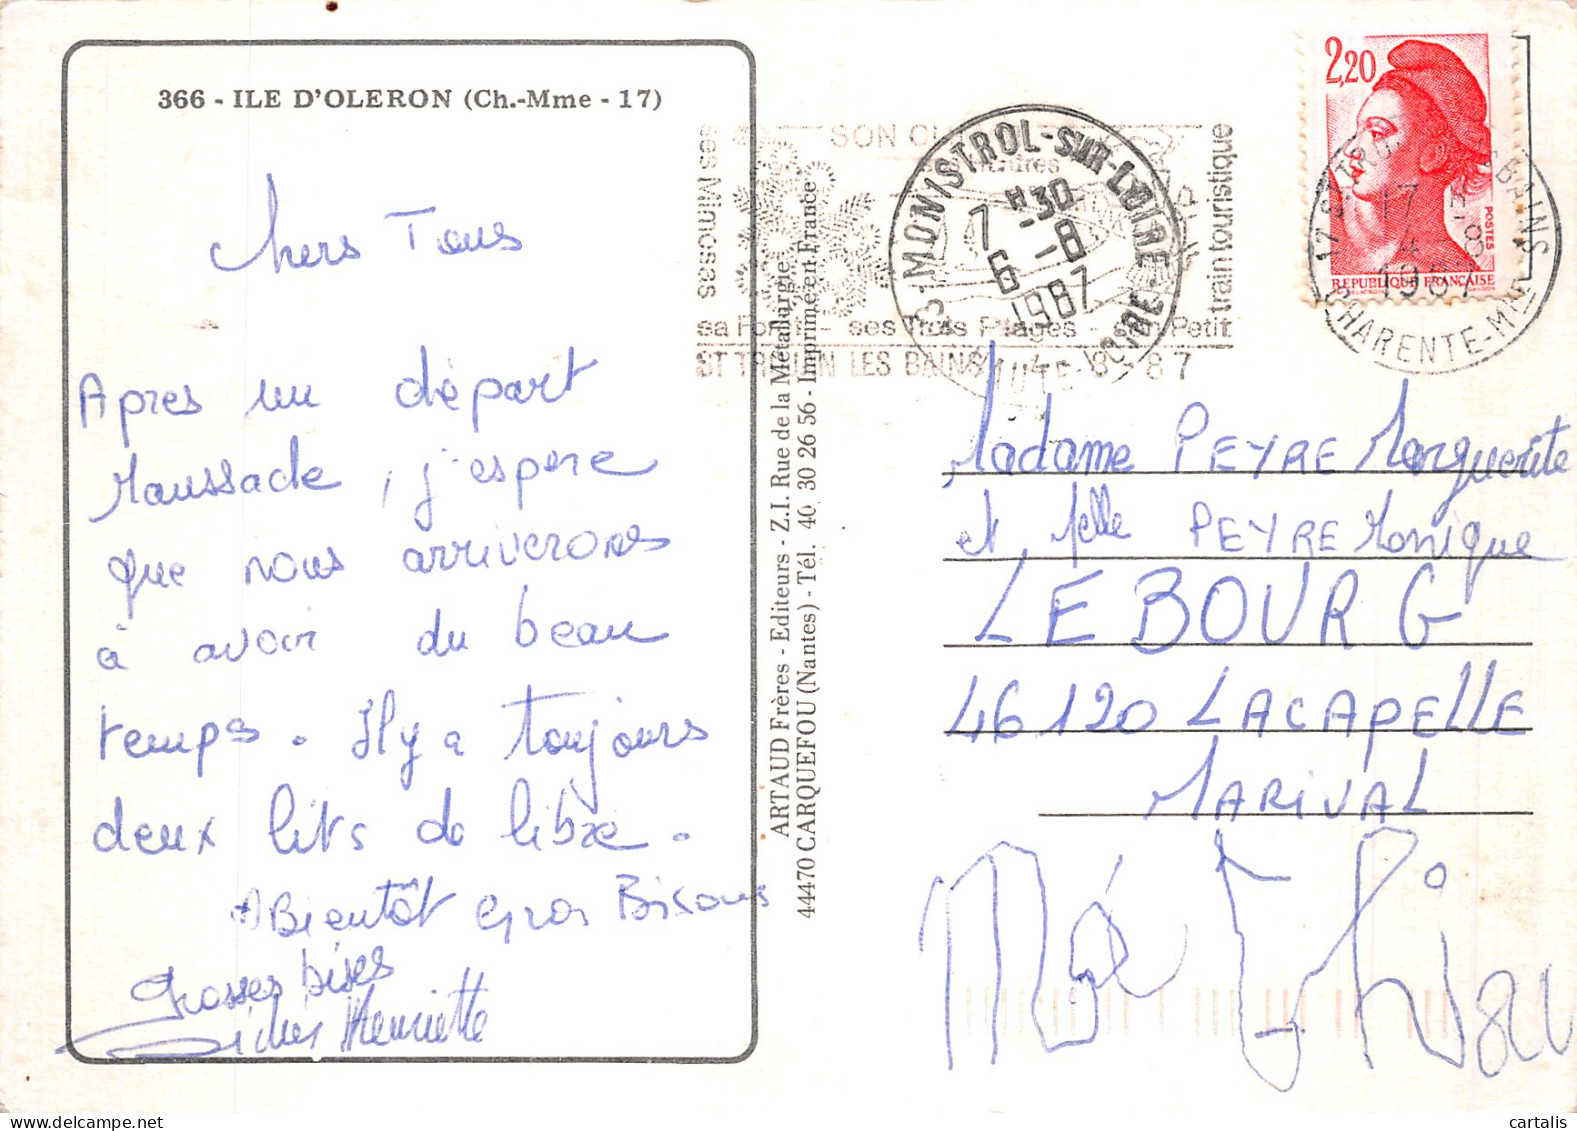 366 - ILE D'OLERON (Ch.-Mme - 17)
chers Tous
Apres un départ
Maussade, j'espere
que nous arriverons
à avoir du beau
temps. Il y a toujours
deux lits de libre.
A Bientôt Gros Bisous
Grosses bises
Henriette
ARTAUD Frères - Editeurs - Z.I. Rue de la Métallurgie
44470 CARQUEFOU (Nantes) - Tél. 40 30 26 56 - Imprimé en France
ses Mimosas
SON
sa Forêt - ses Trois Plages - son Petit
train touristique
ST TROJAN LES BAINS 4 - 8 - 87
43 - MONISTROL-SUR-LOIRE
HAUTE-LOIRE
7 H30
6 - 8
1987
2,20
POSTES
REPUBLIQUE FRANÇAISE
17 ST TROJAN LES BAINS
17 H
4 - 8
1987
CHARENTE-MME
Madame PEYRE Marguerite
et Melle PEYRE Monique
LE BOURG
46120 LACAPELLE
MARIVAL
cartalis